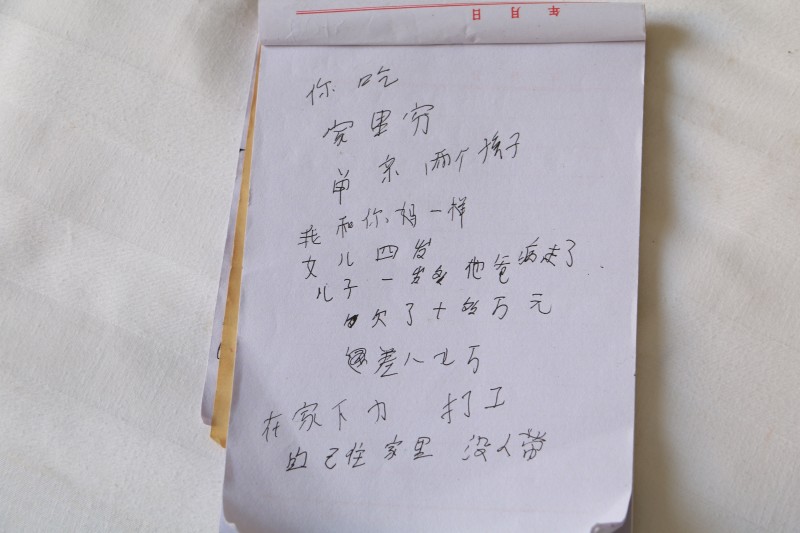 年 月 日
你吃
家里穷
单亲 两个孩子
我和你妈一样
女儿四岁
儿子一岁多他爸病走了
欠了十多万元
还差八七万
在家下力 打工
自己住家里 没人带